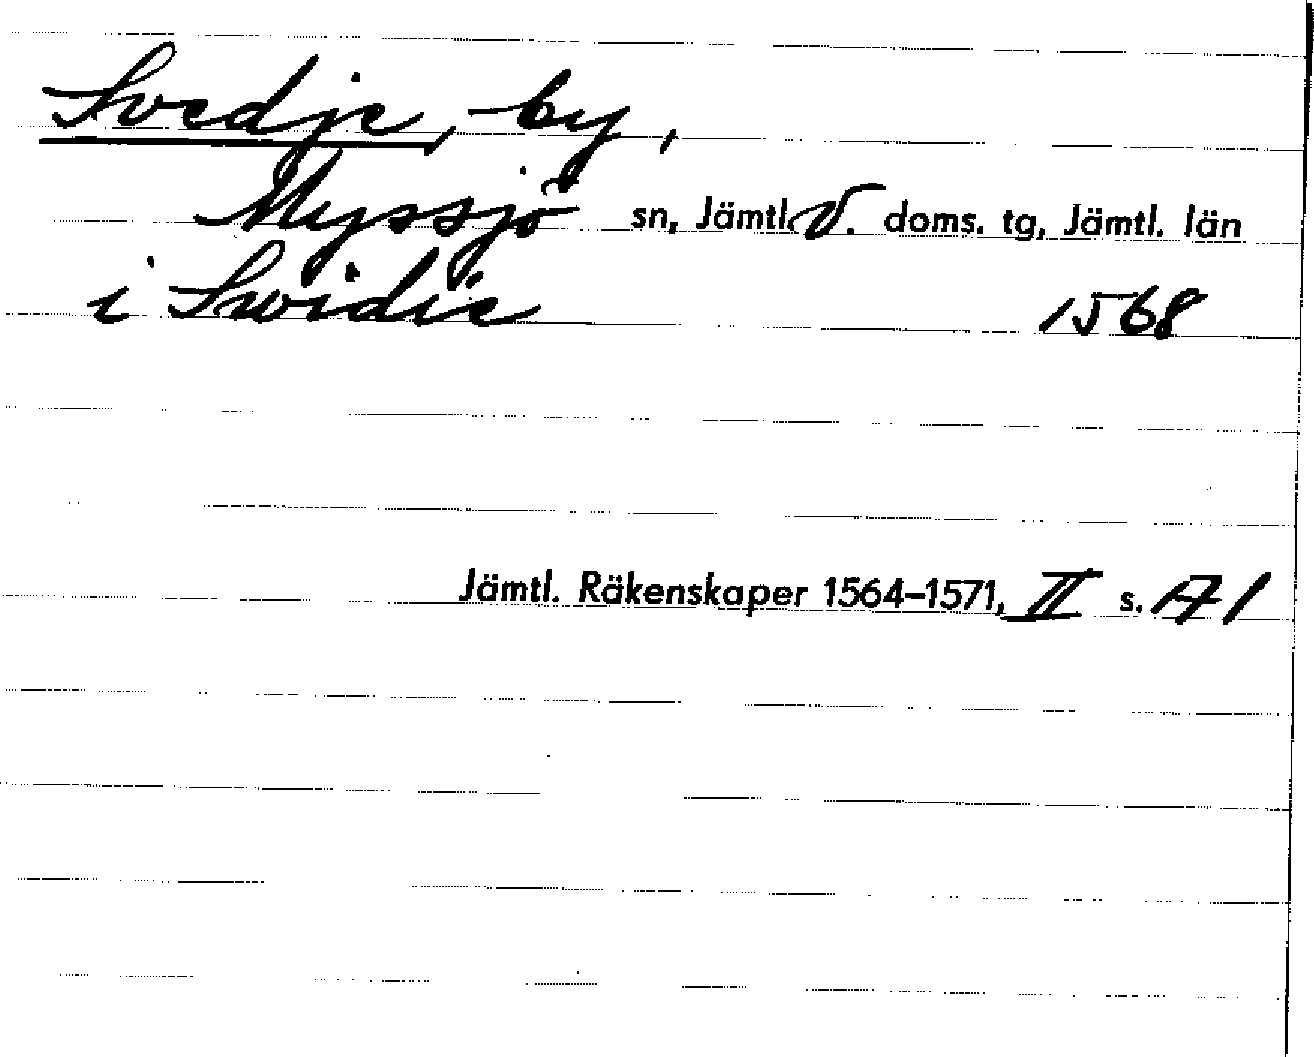 Svedje, by,
Myssjö sn, Jämtl. V. doms. tg, Jämtl. län
i Swidie 1568
Jämtl. Räkenskaper 1564–1571, II s. A1